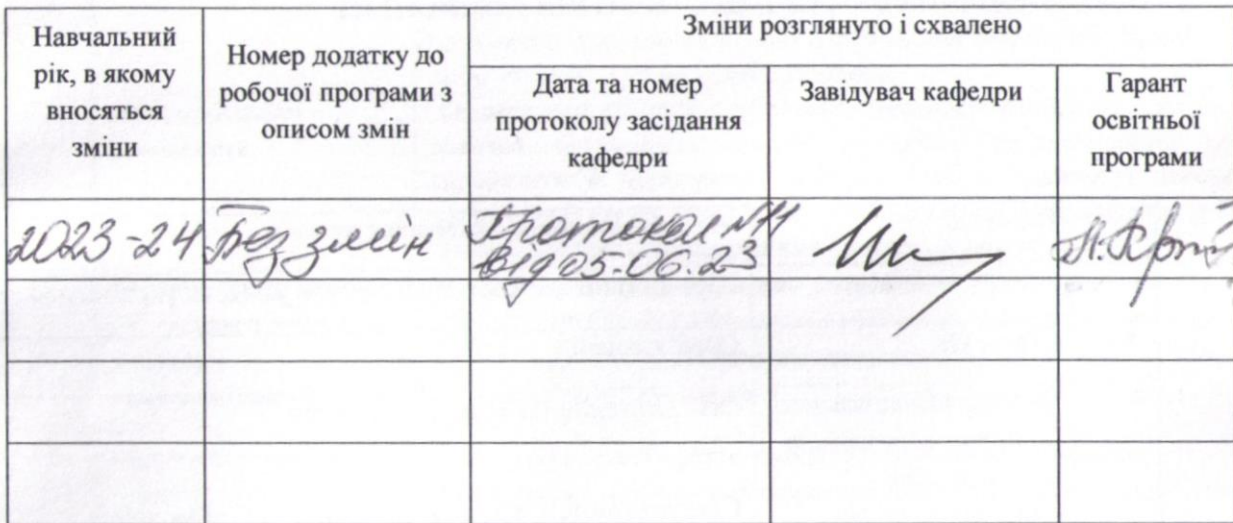 Навчальний
рік, в якому
вносяться
зміни
Номер додатку до
робочої програми з
описом змін
Зміни розглянуто і схвалено
Дата та номер
протоколу засідання
кафедри
Завідувач кафедри
Гарант
освітньої
програми
2023-24
Без змін
Протокол №11
від 05.06.23